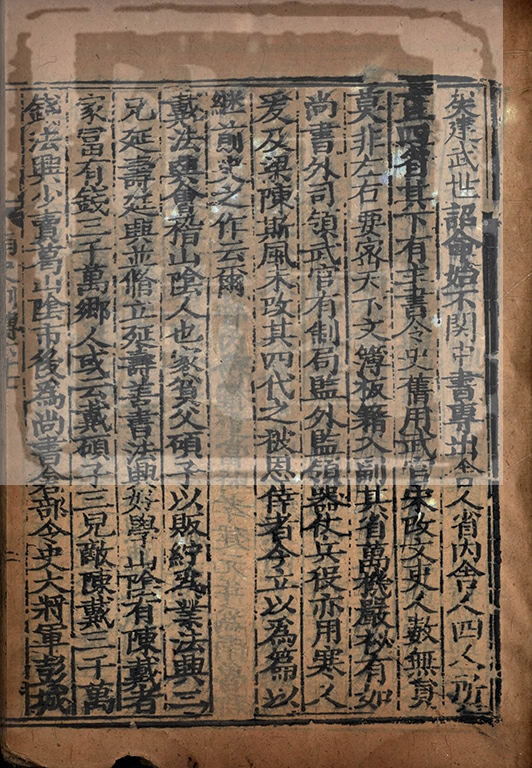 矣建武世詔命始不関中書專出舍人省内舍人四人所
直四省其下有主書令史舊用武官宋改文吏人數無員
莫非左右要密天下文簿板籍入副其省萬機嚴秘有如
尚書外司領武官有制局監外監領器仗兵役亦用寒人
爰及梁陳斯風未改其四代之被恩倖者今立以為篇以
継前史之作云爾
戴法興會稽山陰人也家貧父碩子以販紵為業法興二
兄延壽延興並脩立延壽善書法興好學山陰有陳戴者
家富有錢三千萬鄉人或云戴碩子三兒敵陳戴三千萬
錢法興少賣葛山陰市後為尚書倉部令史大將軍彭城